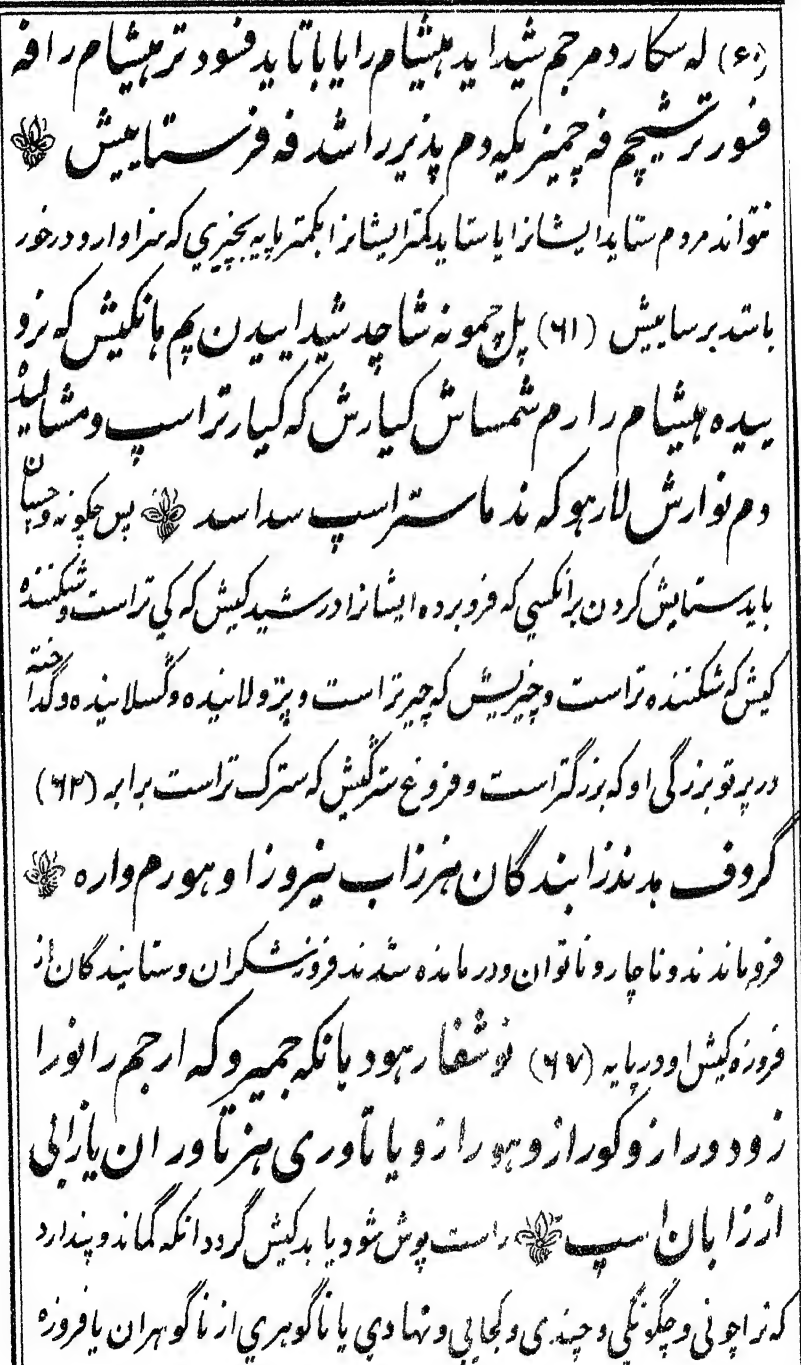 (۶۰) له سکار دمرجم شیداید هیشام رایا با تاید فسود تر هیشام رافه
فنورتر شیچم فه چمیز یکیه دم پذیر راشد فه فرستاییش
نتواند مردم ستاید ایشانرا یا ستاید کمتر ایشانرا بکمتر پایه بچیزی که سزاوار و درخور
باشد برسابیش (۶۱) پل چمونه شاچد شیداییدن پم هانکیش که نرو
بیده هیشام را رم شمساش کیارش که کیارتر اسپ و مشالید
دم نوارش لارهو که ند ماستر اسپ سداسد پس چگونه و چسان
باید ستایش کردن برانکسی که فرو برده ایشانرا در شید کیش که کی تر است و شکننده
کیش که شکننده تر است و چیریش که چیرتر است و پژولانیده و گسلانیده و گداخته
در پرتو بزرگی او که بزرگتر است و فروغ سترگیش که سترک تر است برابر (۶۲)
گروف مدند زابندگان هنرزاب نیروزا و هورم واره
فروماندند و ناچار و ناتوان و درمانده شدند فروزشگران و ستایندگان از
فروزه کیش او در پایه (۶۷) نوشفار هود یا نکه جمیرو که ارجم را نورا
زود ورازو کورازو هورازو یا تاوری هنرتاوران یا زابی
از زابان اسپ راست پوش شود یا بدکیش گردد انکه گماند و پندارد
که ترا چونی و چگونگی و چندی و کجایی و نهادی یا ناگوهری از ناگوهران یا فروزه